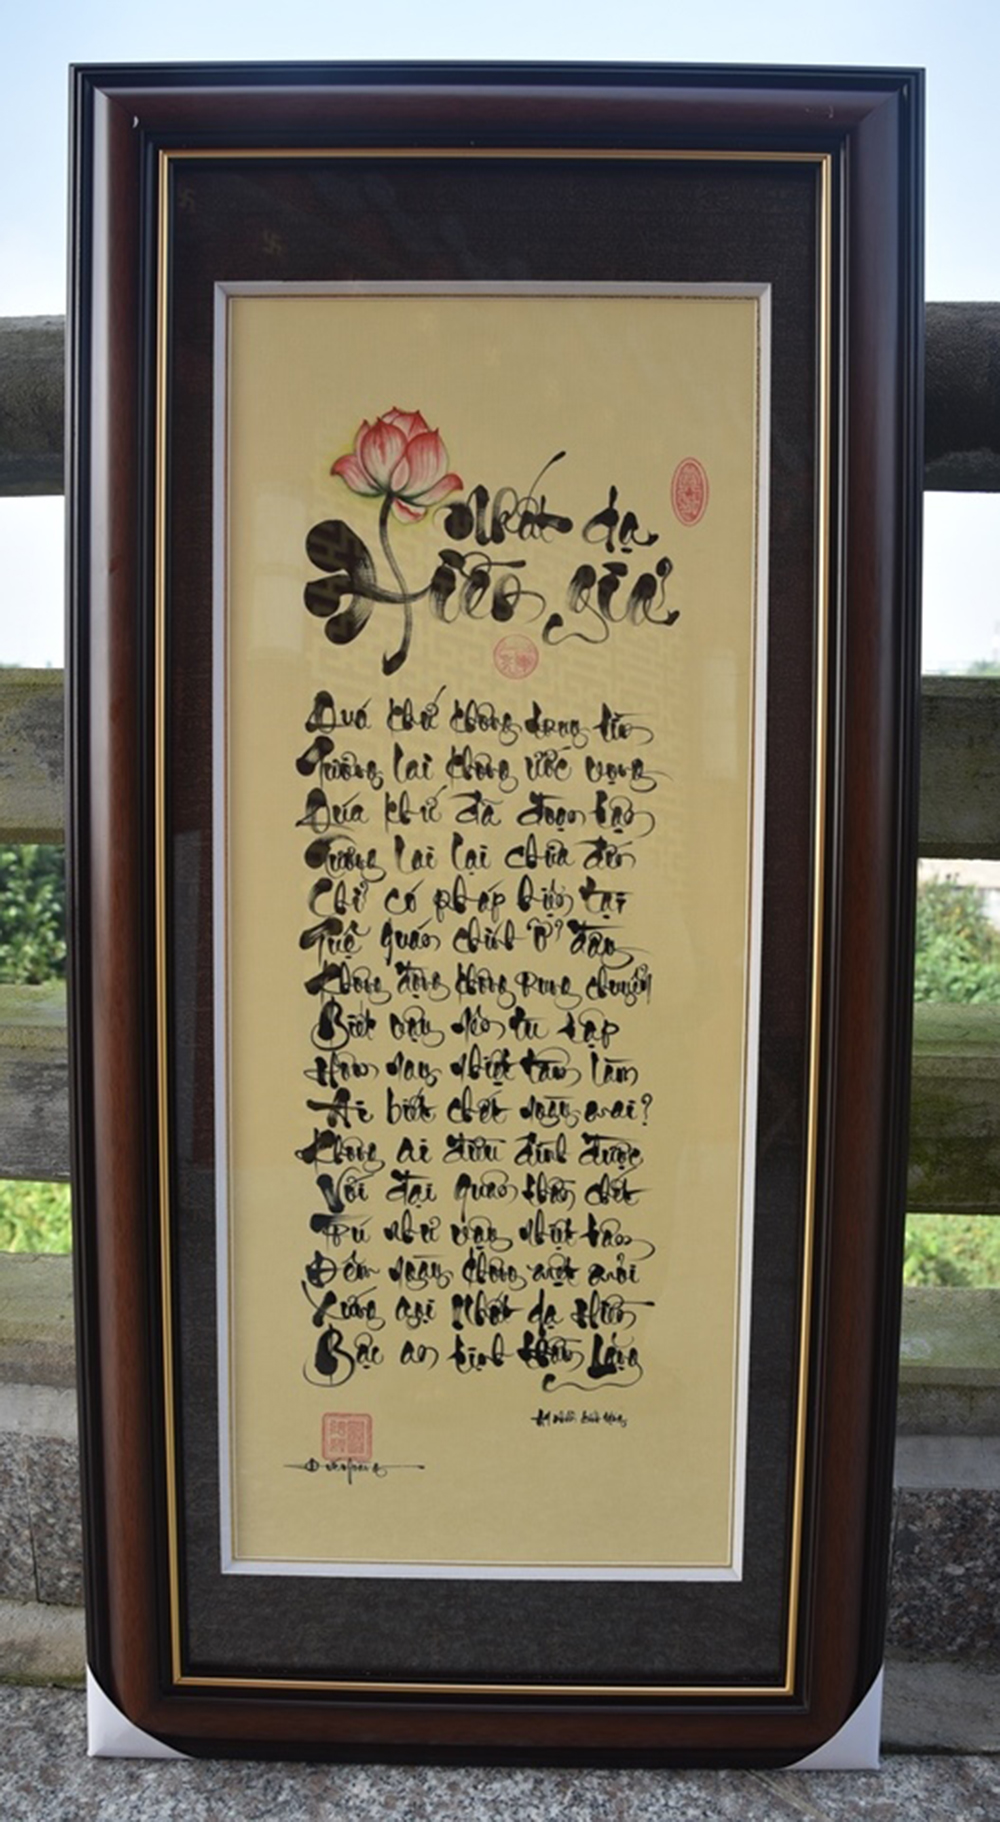 Nhất dạ
Hiền giả
Quá khứ không truy tìm
Tương lai không ước vọng
Quá khứ đã đoạn tận
Tương lai lại chưa đến
Chỉ có pháp hiện tại
Tuệ quán chính ở đây
Không động không rung chuyển
Biết vậy nên tu tập
Hôm nay nhiệt tâm làm
Ai biết chết ngày mai?
Không ai điều đình được
Với đại quân thần chết
Trú như vậy nhiệt tâm
Đêm ngày không mệt mỏi
Xứng gọi Nhất dạ Hiền
Bậc an tịnh trầm lặng